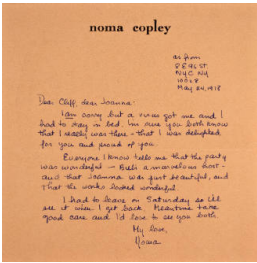 noma copley
as from
8 E 96 ST
NYC NY
10028
May 24, 1978
Dear Cliff, dear Joanna:
I am sorry but a virus got me and I
had to stay in bed. I'm sure you both know
that I really was there - that I was delighted
for you and proud of you.
Everyone I know tells me that the party
was wonderful - a marvelous host -
and that Joanna was just beautiful, and
that the works looked wonderful.
I had to leave on Saturday so I'll
see it when I get back. Meantime take
good care and I'd love to see you both.
My love,
Noma